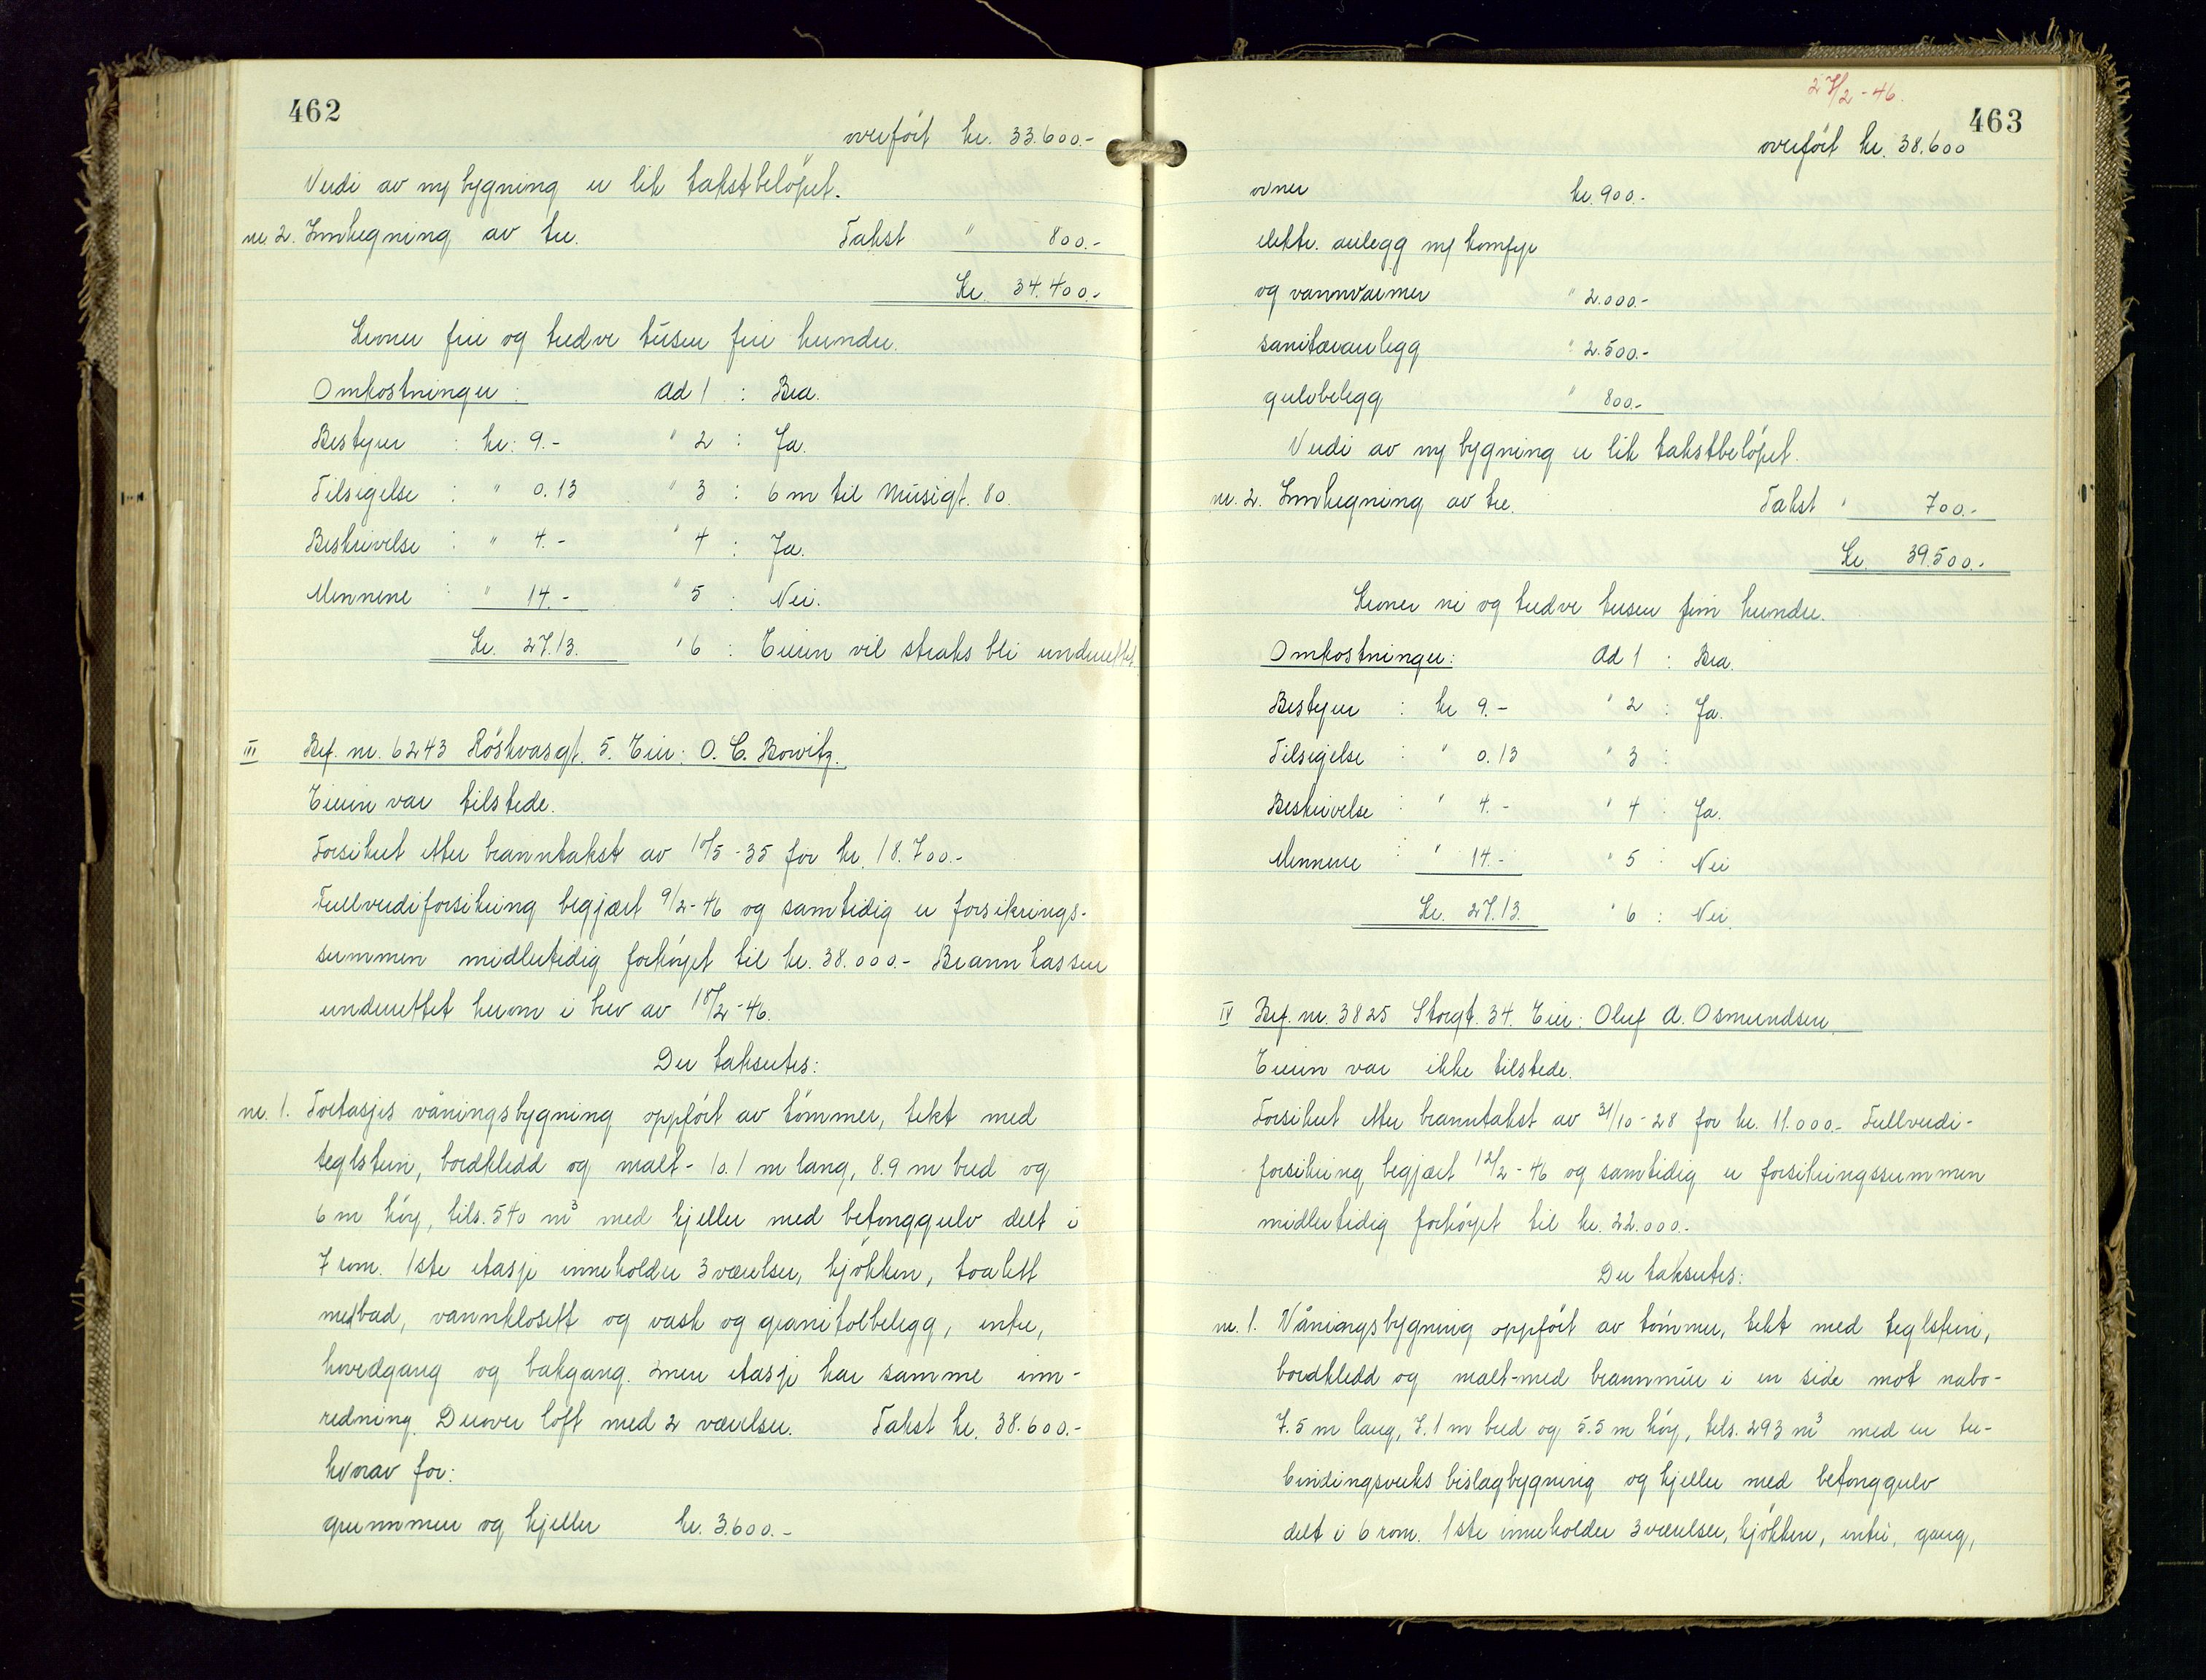 462
overført kr. 33.600.-
Verdi av ny bygning er lik takstbeløpet.
nr. 2. Innhegning av tre. Takst " 800.-
Kr. 34.400.-
Kroner fire og tredve tusen fire hundre.
Omkostninger: Ad 1 : Bra.
Bestyrer : kr. 9.- " 2 : Ja.
Tilsigelse : " 0.13 " 3 : 6 m til Müsigt. 80.
Beskrivelse : " 4.- " 4 : Ja.
Mennene : " 14.- " 5 : Nei.
Kr. 27.13. " 6 : Eieren vil straks bli underrettet.
III Brf. nr. 6243 Röskvasgt. 5. Eier: O. C. Bowitz.
Eieren var tilstede.
Forsikret etter branntakst av 10/5-35 for kr. 18.700.-
Fullverdiforsikring begjært 9/2-46 og samtidig er forsikrings-
summen midlertidig forhøyet til kr. 38.000.- Brannkassen
underrettet herom i brev av 18/2-46.
Der takseres:
nr. 1. Toetasjes våningsbygning oppført av tømmer, tekt med
teglstein, bordkledd og malt - 10.1 m lang, 8.9 m bred og
6 m høy, tils. 540 m³ med kjeller med betonggulv delt i
7 rom. 1ste etasje inneholder 3 værelser, kjøkken, toalett
med bad, vannklosett og vask og granitolbelegg, entre,
hovedgang og bakgang. 2nen etasje har samme inn-
redning. Derover loft med 2 værelser. Takst kr. 38.600.-
hvorav for:
grunnmur og kjeller kr. 3.600.-
27/2-46.
463
overført kr. 38.600
ovner kr. 900.-
elektr. anlegg m/ komfyr
og vannvarmer " 2.000.-
sanitæranlegg " 2.500.-
gulvbelegg " 800.-
Verdi av ny bygning er lik takstbeløpet.
nr. 2. Innhegning av tre. Takst " 700.-
Kr. 39.500.-
Kroner ni og tredve tusen fem hundre.
Omkostninger: Ad 1 : Bra.
Bestyrer : kr 9.- " 2 : Ja.
Tilsigelse : " 0.13 " 3 :
Beskrivelse : " 4.- " 4 : Ja.
Mennene : " 14.- " 5 : Nei
Kr. 27.13. " 6 : Nei.
IV Brf. nr. 3825 Storgt. 34. Eier: Oluf A. Osmundsen.
Eieren var ikke tilstede.
Forsikret etter branntakst av 31/10-28 for kr. 11.000.- Fullverdi-
forsikring begjært 12/2-46 og samtidig er forsikringssummen
midlertidig forhøyet til kr. 22.000.-
Der takseres:
nr. 1. Våningsbygning oppført av tømmer, tekt med teglstein,
bordkledd og malt - med brannmur i en side mot nabo -
7.5 m lang, 7.1 m bred og 5.5 m høy, tils. 293 m³ med en tre-
bindingsverks bislagbygning og kjeller med betonggulv
delt i 6 rom. 1ste inneholder 3 værelser, kjøkken, entre, gang,